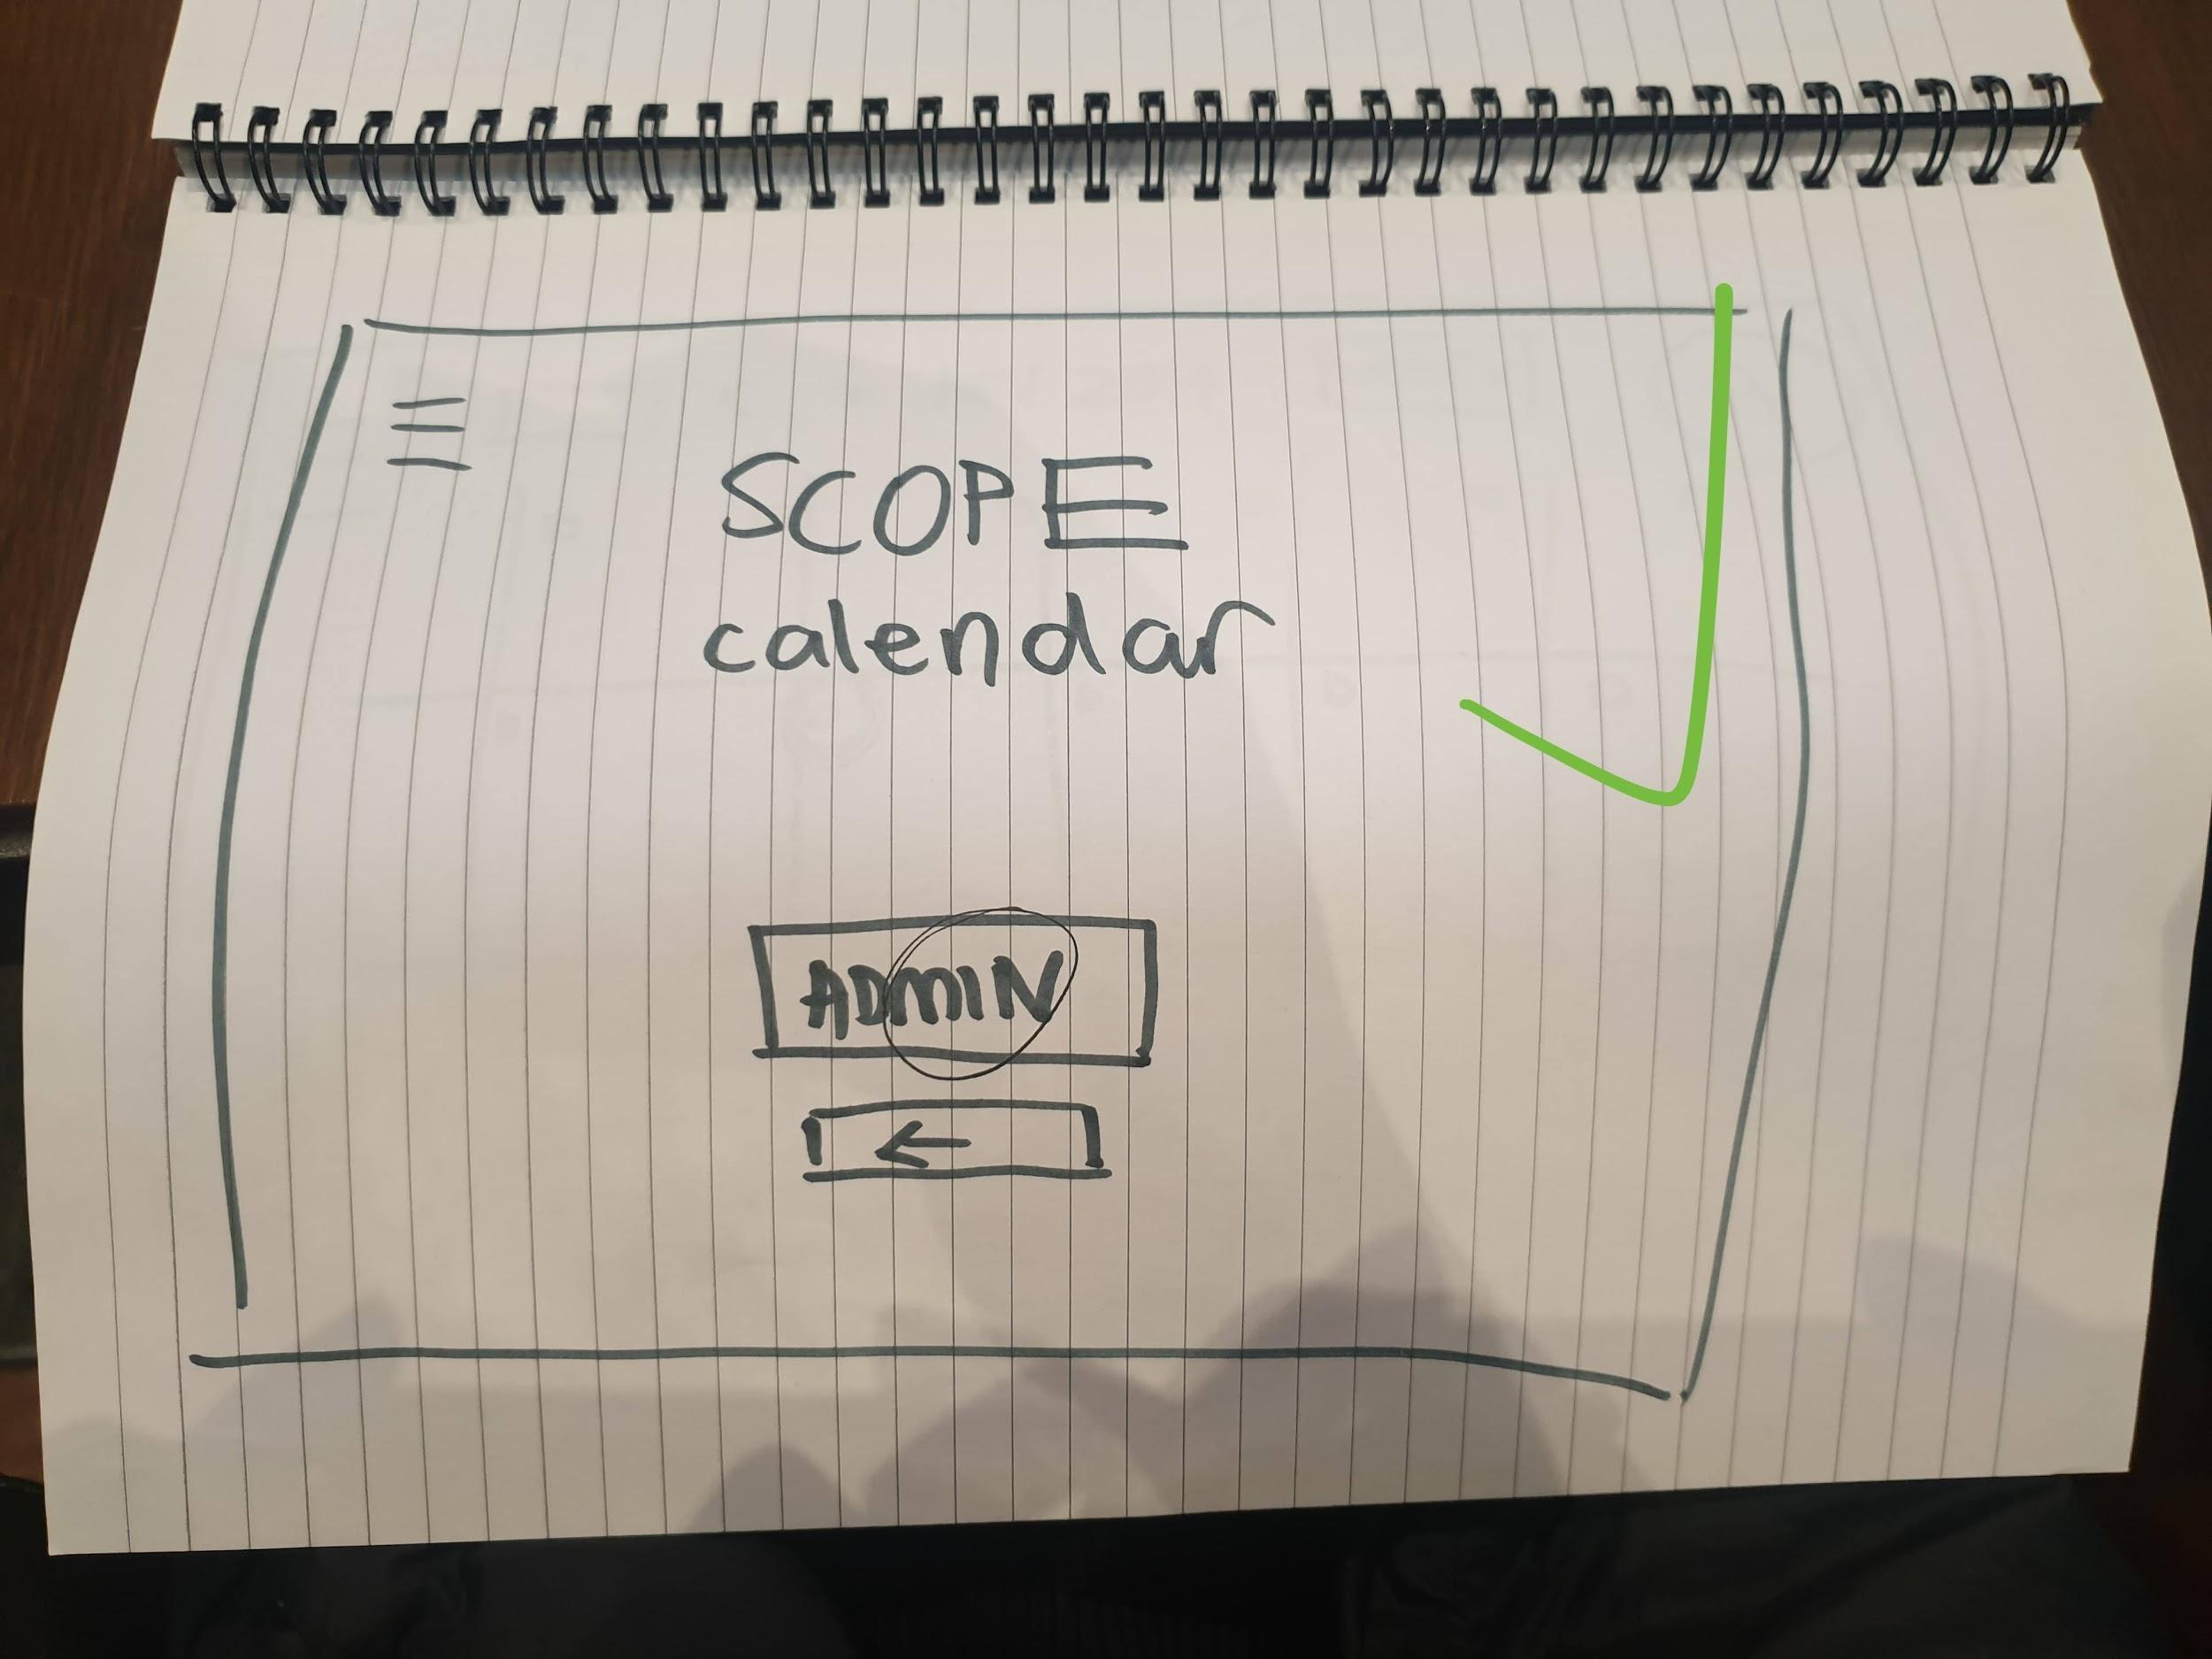 SCOPE
calendar
ADMIN
←